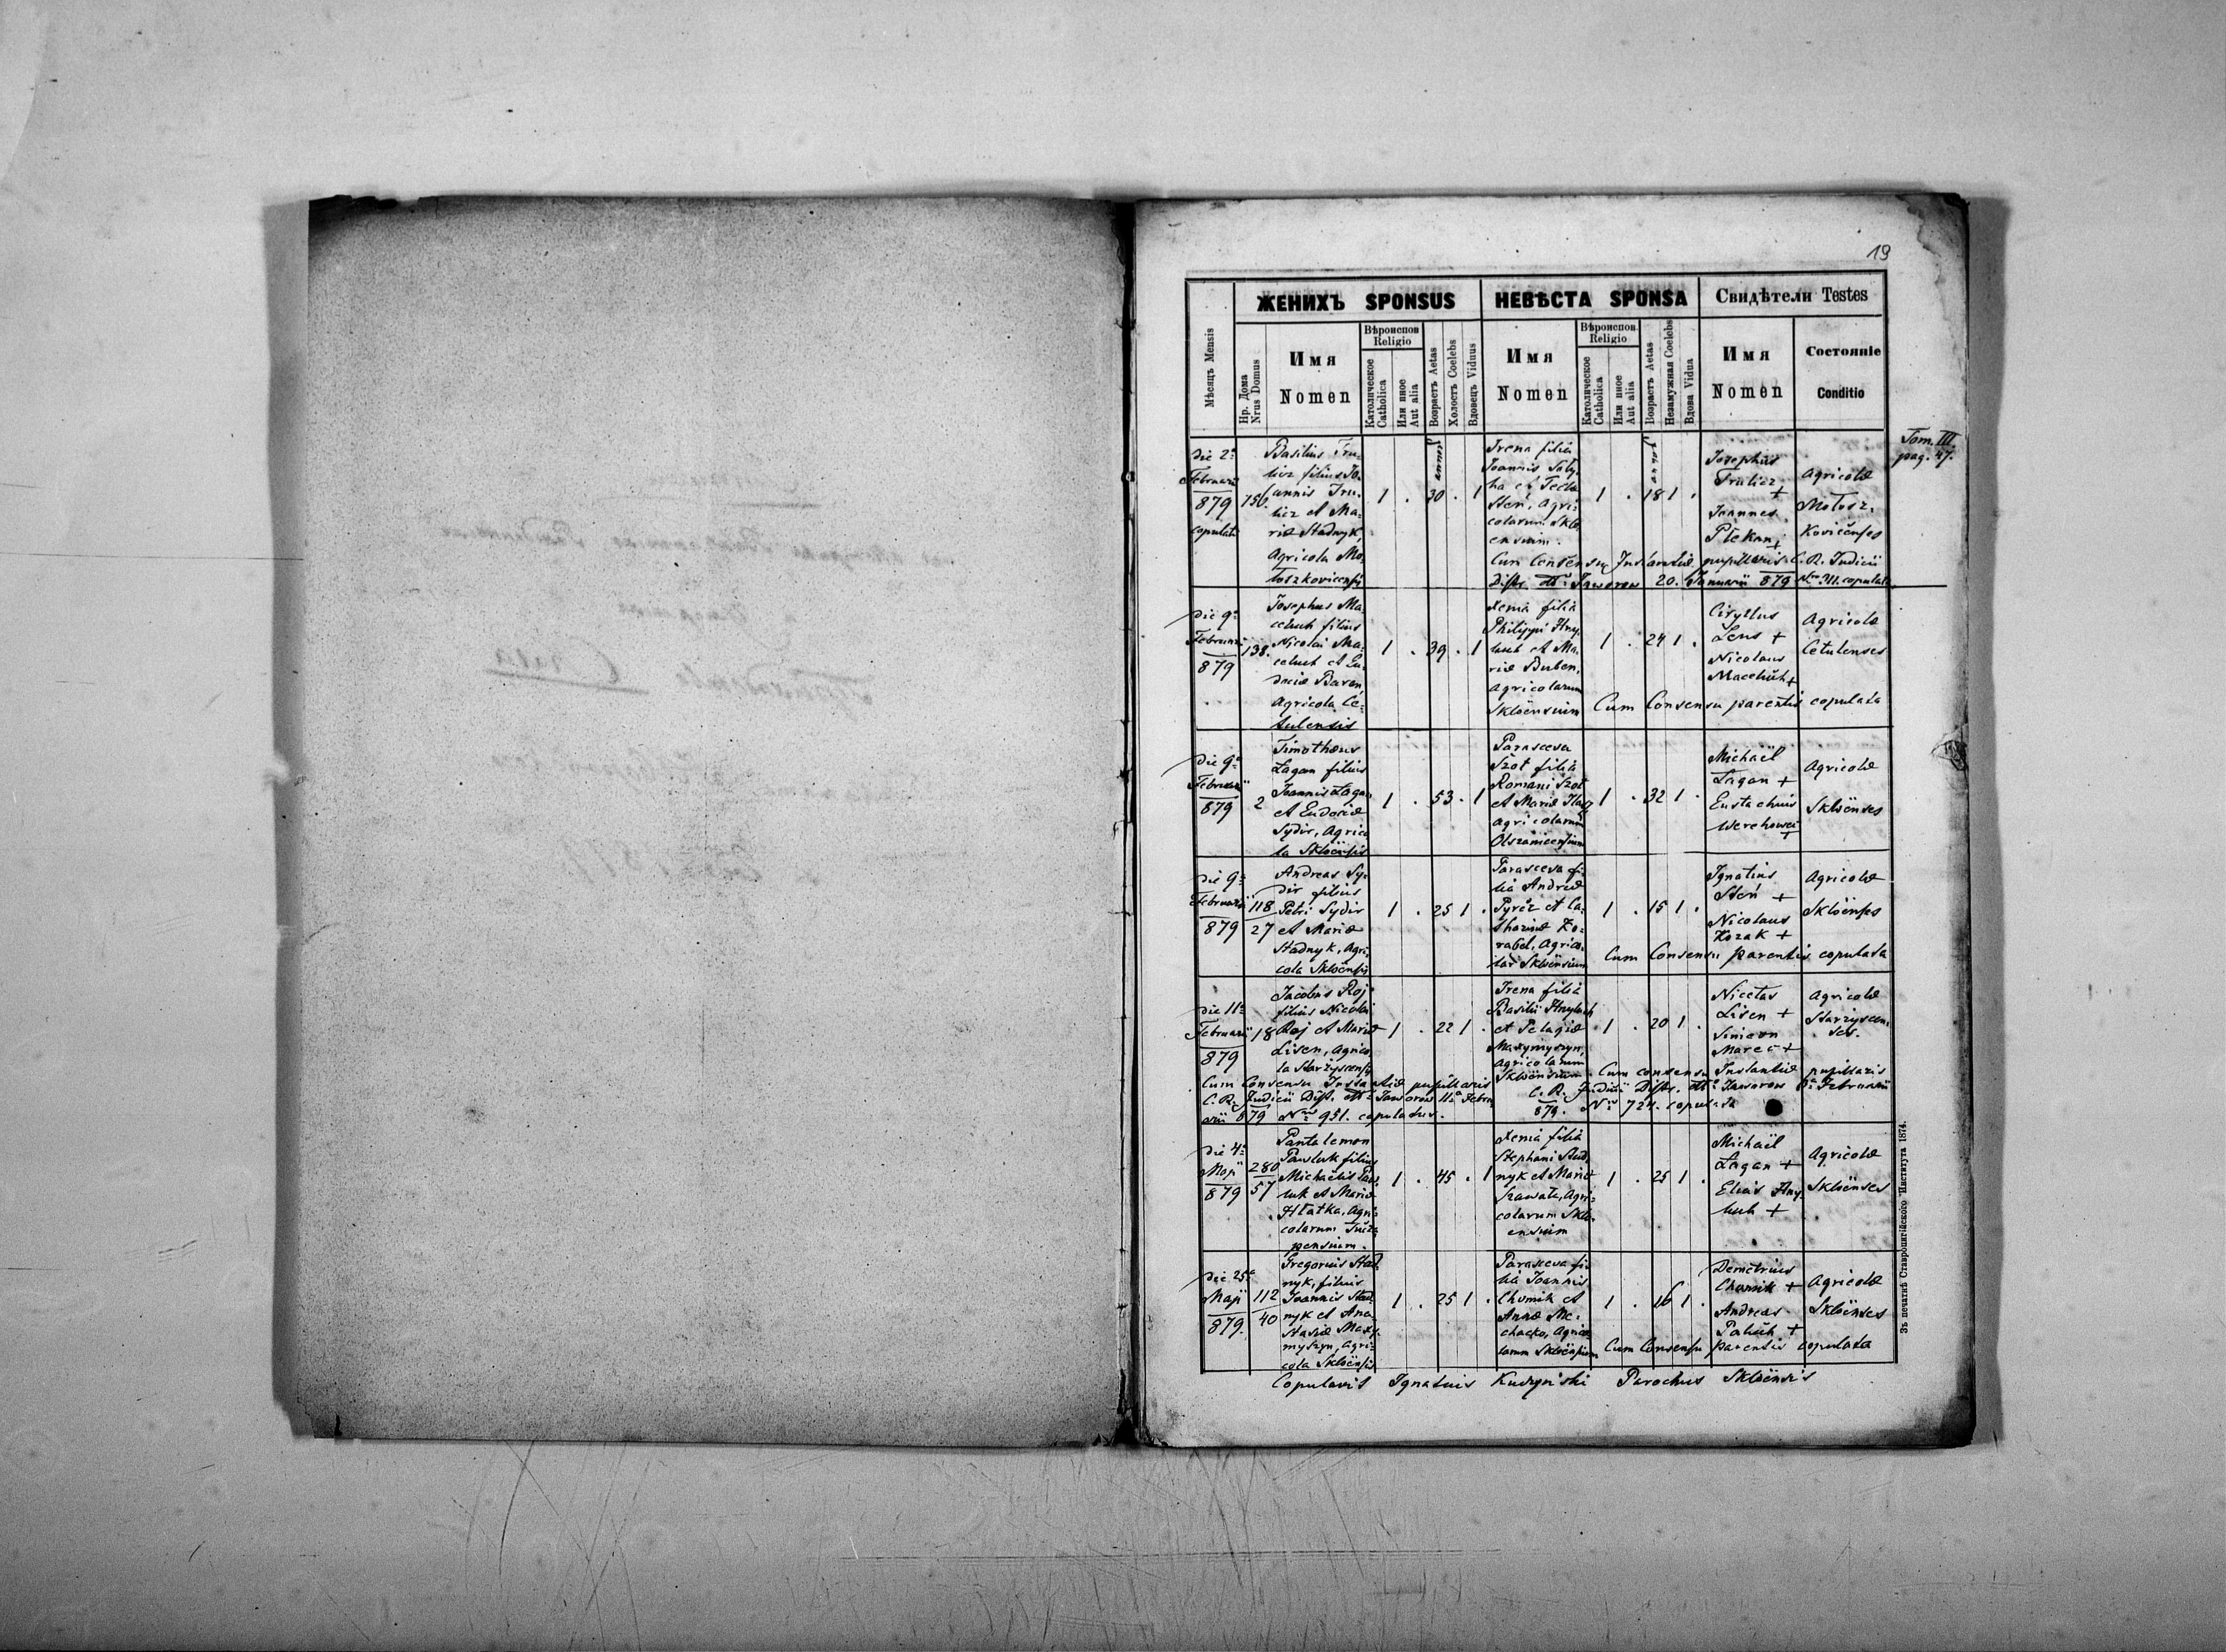 19
Tom. III.
pag. 47.
ЖЕНИХЪ SPONSUS
НЕВѢСТА SPONSA
Свидѣтели Testes
Мѣсяцъ Mensis
Нр. Дома
Nrus Domus
Имя
Nomen
Вѣроиспов.
Religio
Католическое
Catholica
Или иное
Aut alia
Возрастъ Aetas
Холостъ Coelebs
Вдовецъ Viduus
Имя
Nomen
Вѣроиспов.
Religio
Католическое
Catholica
Или иное
Aut alia
Возрастъ Aetas
Незамужная Coelebs
Вдова Vidua
Имя
Nomen
Состояніе
Conditio
Die 2ª
Februarii
879
copulati
150.
Basilius Tru-
licz filius Jo-
annis Tru-
licz et Ma-
riæ Stadnyk,
Agricola Mo-
łoszkovicensis
1 . 30 . 1
annor
Irena filia
Joannis
et Teclæ
Steń, Agri-
colarum Sklo-
ensium.
1 . 18 1 .
Josephus
Trulicz +
Joannes
Plekan +
Agricolæ
Mołosz-
kovicenses
Cum Consensu Instantiæ pupillaris C. R. Judicii
Distr. Jaworow 20. Januarii 879 Nro. 311. copulata
Die 9ª
Februarii
879
138.
Josephus Ma-
celuch filius
Nicolai Ma-
celuch et Eu-
dociæ Baran,
Agricola Ce-
tulensis
1 . 39 . 1
Xenia filia
Philippi Hny-
luch et Ma-
riæ Buben,
Agricolarum
Skloënsium
1 . 24 1 .
Ciryllus
Lens +
Nicolaus
Macełuch +
Agricolæ
Cetulenses
Cum Consensu parentis copulata
Die 9ª
Februarii
879
2
Timotheus
Łagan filius
Joannis Łagan
et Eudociæ
Sydir, Agrico-
la Skloënsis
1 . 53 . 1
Parasceva
Szot filia
Romani Szot
et Mariæ
Agricolarum
Olszanicensium
1 . 32 1 .
Michaël
Łagan +
Eustachius
Werchowei
+
Agricolæ
Skloënses
Die 9ª
Februarii
879
118
27
Andreas Sy-
dir filius
Petri Sydir
et Mariæ
Stadnyk, Agri-
cola Skloënsis
1 . 25 1 .
Parasceva fi-
lia Andreæ
Pyróz et Ca-
tharinæ Ko-
rabel, Agrico-
lar Skloënsium
1 . 15 1 .
Ignatius
Steń +
Nicolaus
Kozak +
Agricolæ
Skloënses
Cum Consensu parentis copulata
Die 11ª
Februarii
879
18
Jacobus Roj
filius Nicolai
Roj et Mariæ
Lisen, Agrico-
la Starzyscensis
1 . 22 1 .
Irena filia
Basilii Hnyluch
et Pelagiæ
Maxymyszyn,
Agricolarum
Skloënsium
1 . 20 1 .
Nicetas
Lisen +
Simeon
Mareć +
Agricolæ
Starzyscen-
ses.
Cum Consensu Instantiæ pupillaris
C. R. Judicii Distr. Jaworow 11ª Febru-
arii 879 Nro 951. copulatus.
Cum consensu Instantiæ pupillaris
C. R. Judicii Distr. Jaworow Februarii
879. Nro 724. copulata
Die 4ª
Maji
879
280
57
Pantalemon
Pawluk filius
Michaëlis Paw-
luk et Mariæ
Hłatka, Agri-
colarum
pensium.
1 . 45 . 1
Xenia filia
Stephani Stad-
nyk et Mariæ
Szawała, Agri-
colarum Sklo-
ensium
1 . 25 1 .
Michaël
Łagan +
Elias Hny-
luch +
Agricolæ
Skloënses
Die 25ª
Maji
879.
112
40
Gregorius Stad-
nyk, filius
Joannis Stad-
nyk et Ana-
stasiæ Maxy-
myszyn, Agri-
cola Skloënsis
1 . 25 1 .
Parasceva fi-
lia Joannis
Chomik et
Annæ Me-
chacko, Agrico-
larum Skloënsium
1 . 16 1 .
Demetrius
Chomik +
Andreas
Paluch +
Agricolæ
Skloënses
Cum Consensu parentis copulata
Copulavit Ignatius Kuczyński Parochus Skloënsis
Зъ печатнѣ Ставропигійского Института 1874.